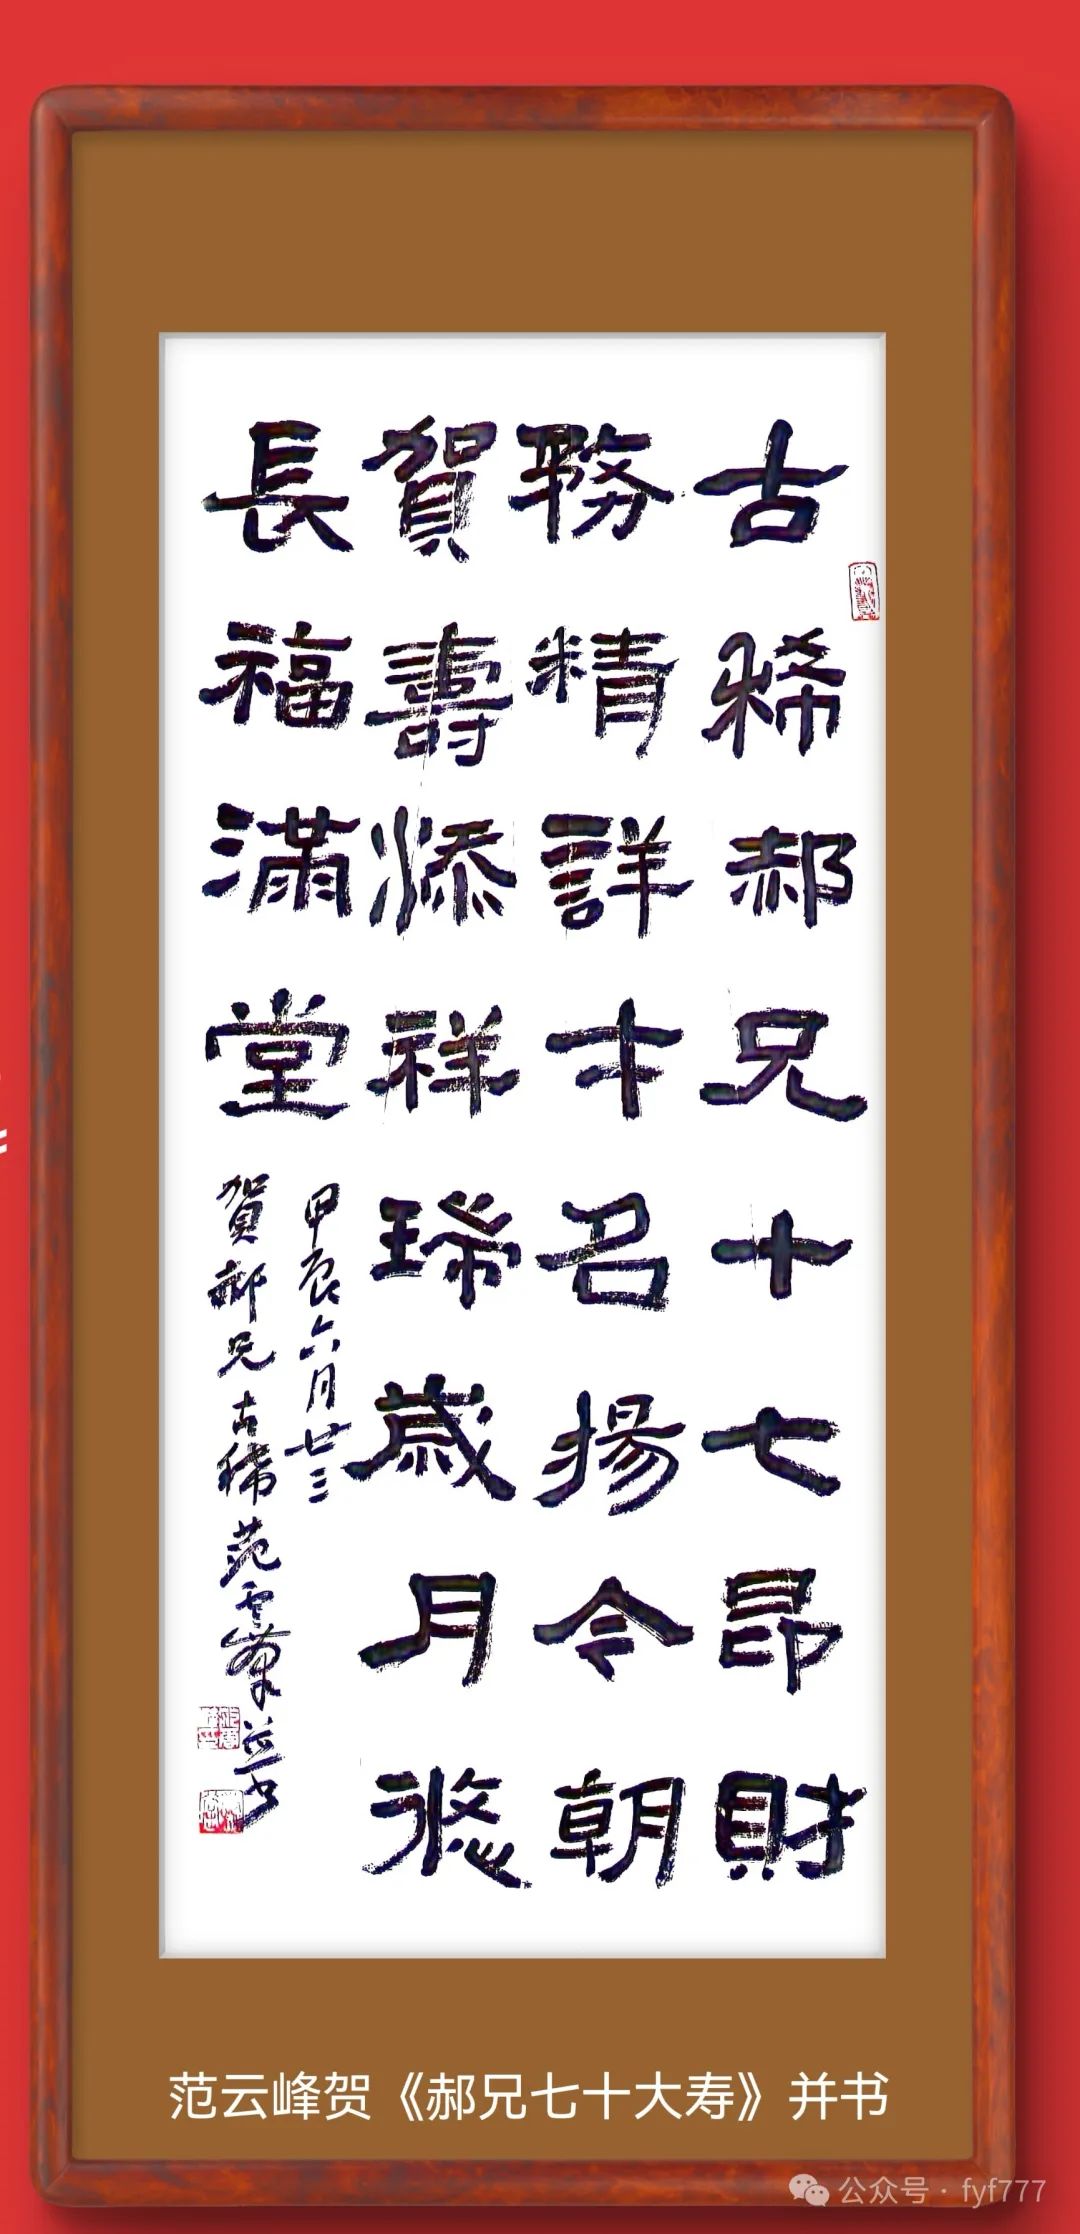 古稀郝兄十七昂財
務精詳才名揚令朝
賀壽添祥瑞歲月悠
長福滿堂
甲辰六月廿三
賀郝兄古稀范云峰並书
范云峰贺《郝兄七十大寿》并书
公众号·fyf777